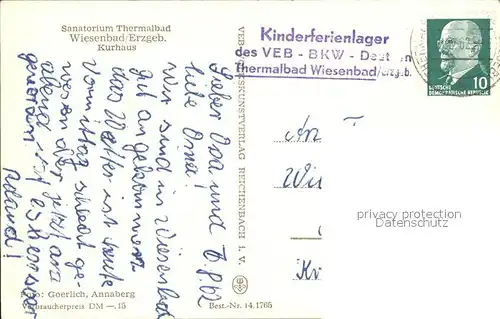 Sanatorium Thermalbad
Wiesenbad/Erzgeb.
Kurhaus
Kinderferienlager
des VEB - BKW - Deut en
Thermalbad Wiesenbad/erzgeb.
10
DEUTSCHE
DEMOKRATISCHE REPUBLIK
Lieber Opa und
liebe Oma!
Wir sind in Wiesenbad
gut angekommen.
das Wetter ist heute
Vormittag schlecht ge-
worden aber jetzt
abend ist es besser
geworden.
Roland!
VEB KUNSTVERLAG REICHENBACH I. V.
An
Wi
Kr
privacy protection
Datenschutz
Foto: Goerlich, Annaberg
Verbraucherpreis DM —.15
Best.-Nr. 14.1765